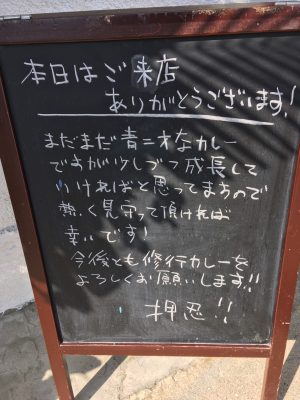 本日はご来店
ありがとうございます!
まだまだ青二才なカレー
ですが少しづつ成長して
いければと思ってますので
熱く見守って頂ければ
幸いです!
今後とも修行カレーを
よろしくお願いします!!
押忍!!